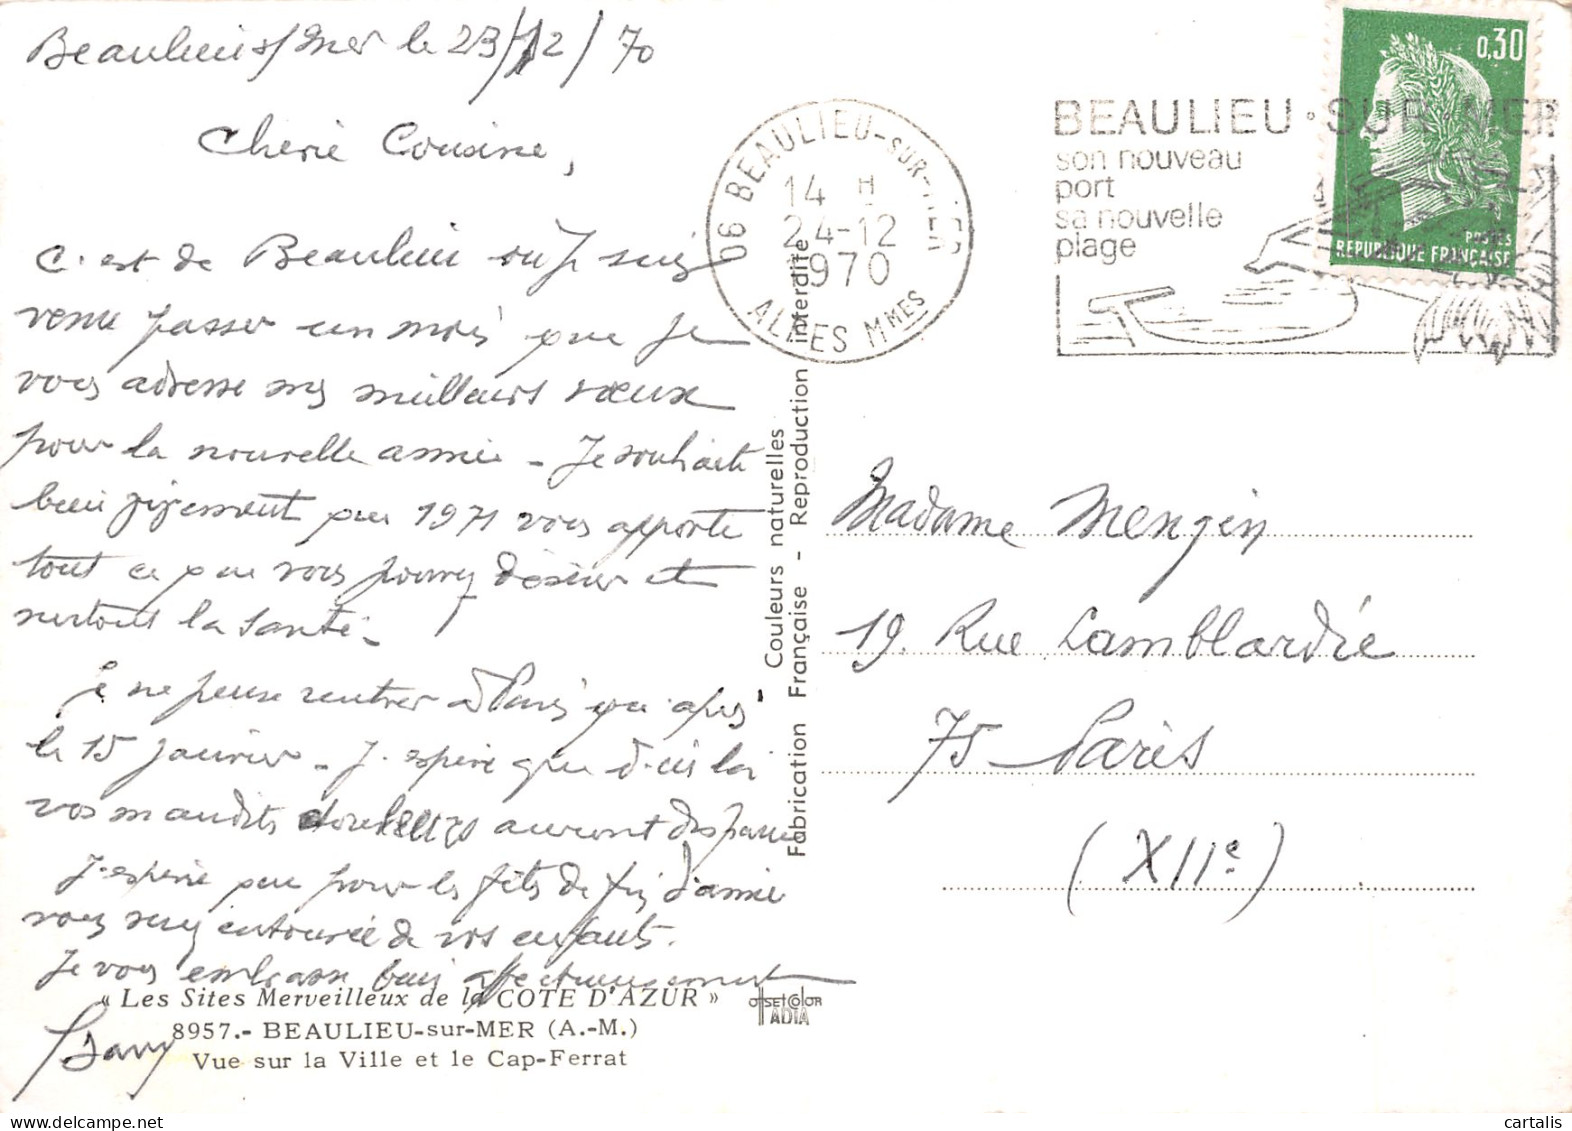 Beaulieu s/ Mer le 23/12/70
Cherie Cousine,
C'est de Beaulieu où je suis
venu passer un mois que je
vous adresse mes meilleurs vœux
pour la nouvelle année - Je souhaite
bien vivement que 1971 vous apporte
tout ce que vous pouvez désirer et
surtout la santé -
Je ne pense rentrer à Paris que après
le 15 janvier - J'espère que d'ici là
vos maudites douleurs auront disparu
J'espère que pour les fêtes de fin d'année
vous serez entourée de vos enfants.
Je vous embrasse bien affectueusement
« Les Sites Merveilleux de la COTE D'AZUR »
8957.- BEAULIEU-sur-MER (A.-M.)
Vue sur la Ville et le Cap-Ferrat
OFFSET COLOR
IADIA
Couleurs naturelles
Fabrication Française - Reproduction interdite
06 BEAULIEU-SUR-MER
14 H
24-12
1970
ALPES MMES
BEAULIEU·SUR·MER
son nouveau
port
sa nouvelle
plage
0,30
POSTES
REPUBLIQUE FRANÇAISE
Madame Mengin
19. Rue Lamblardie
75 - Paris
(XIIe)
cartalis